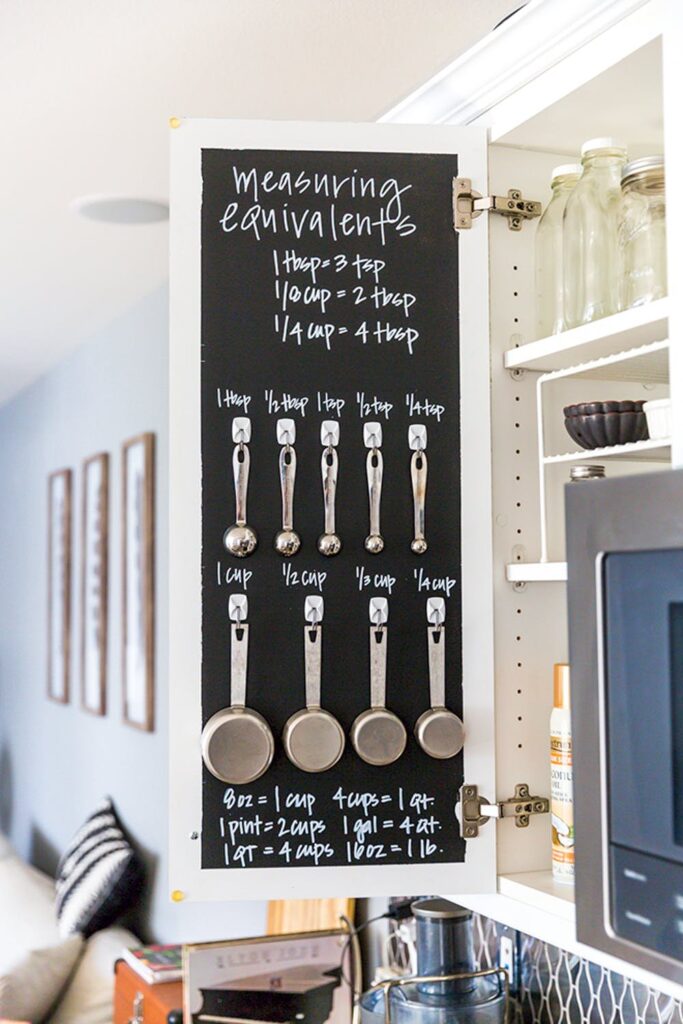 measuring
equivalents
1 tbsp = 3 tsp
1/8 cup = 2 tbsp
1/4 cup = 4 tbsp
1 tbsp 1/2 tbsp 1 tsp 1/2 tsp 1/4 tsp
1 cup 1/2 cup 1/3 cup 1/4 cup
8oz = 1 cup 4 cups = 1 qt.
1 pint = 2 cups 1 gal = 4 qt.
1 QT = 4 cups 16oz = 1 lb.
OIL
ELTON JOHN